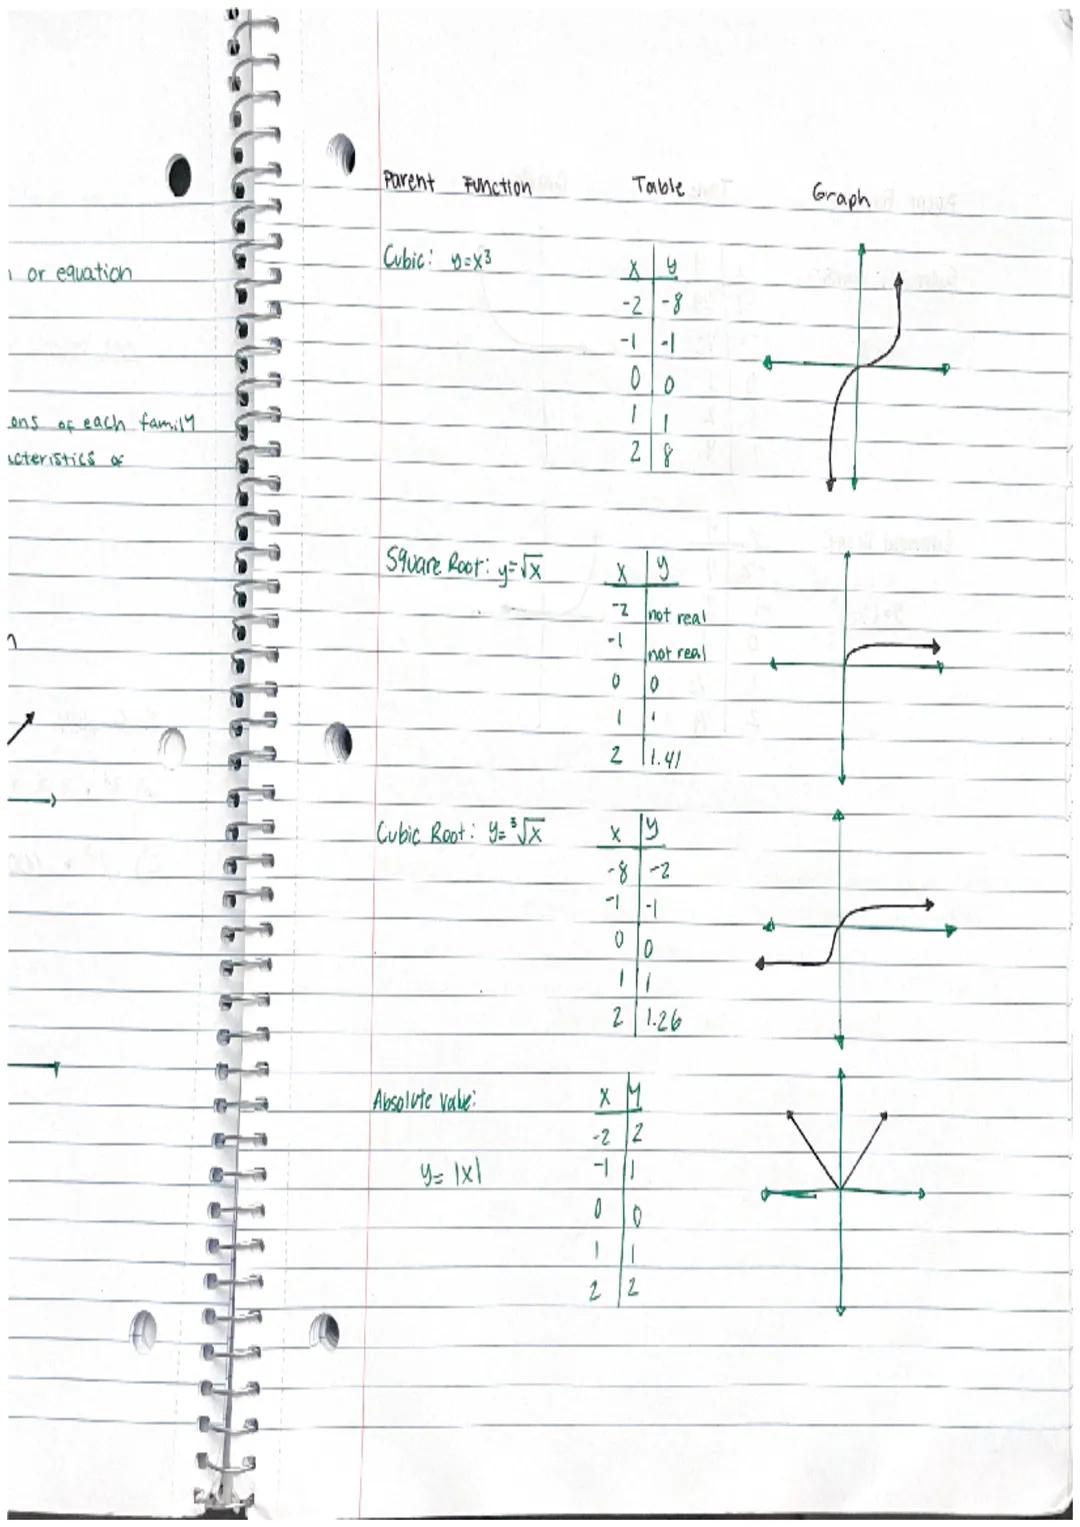 or equation
of each family
of
Parent Function Table Graph
Cubic: y=x³
x y
-2 -8
-1 -1
0 0
1 1
2 8
Square Root: y=√x
x y
-2 not real
-1 not real
0 0
1 1
2 1.41
Cubic Root: y=³√x
x y
-8 -2
-1 -1
0 0
1 1
2 1.26
Absolute Value:
y=|x|
x y
-2 2
-1 1
0 0
1 1
2 2